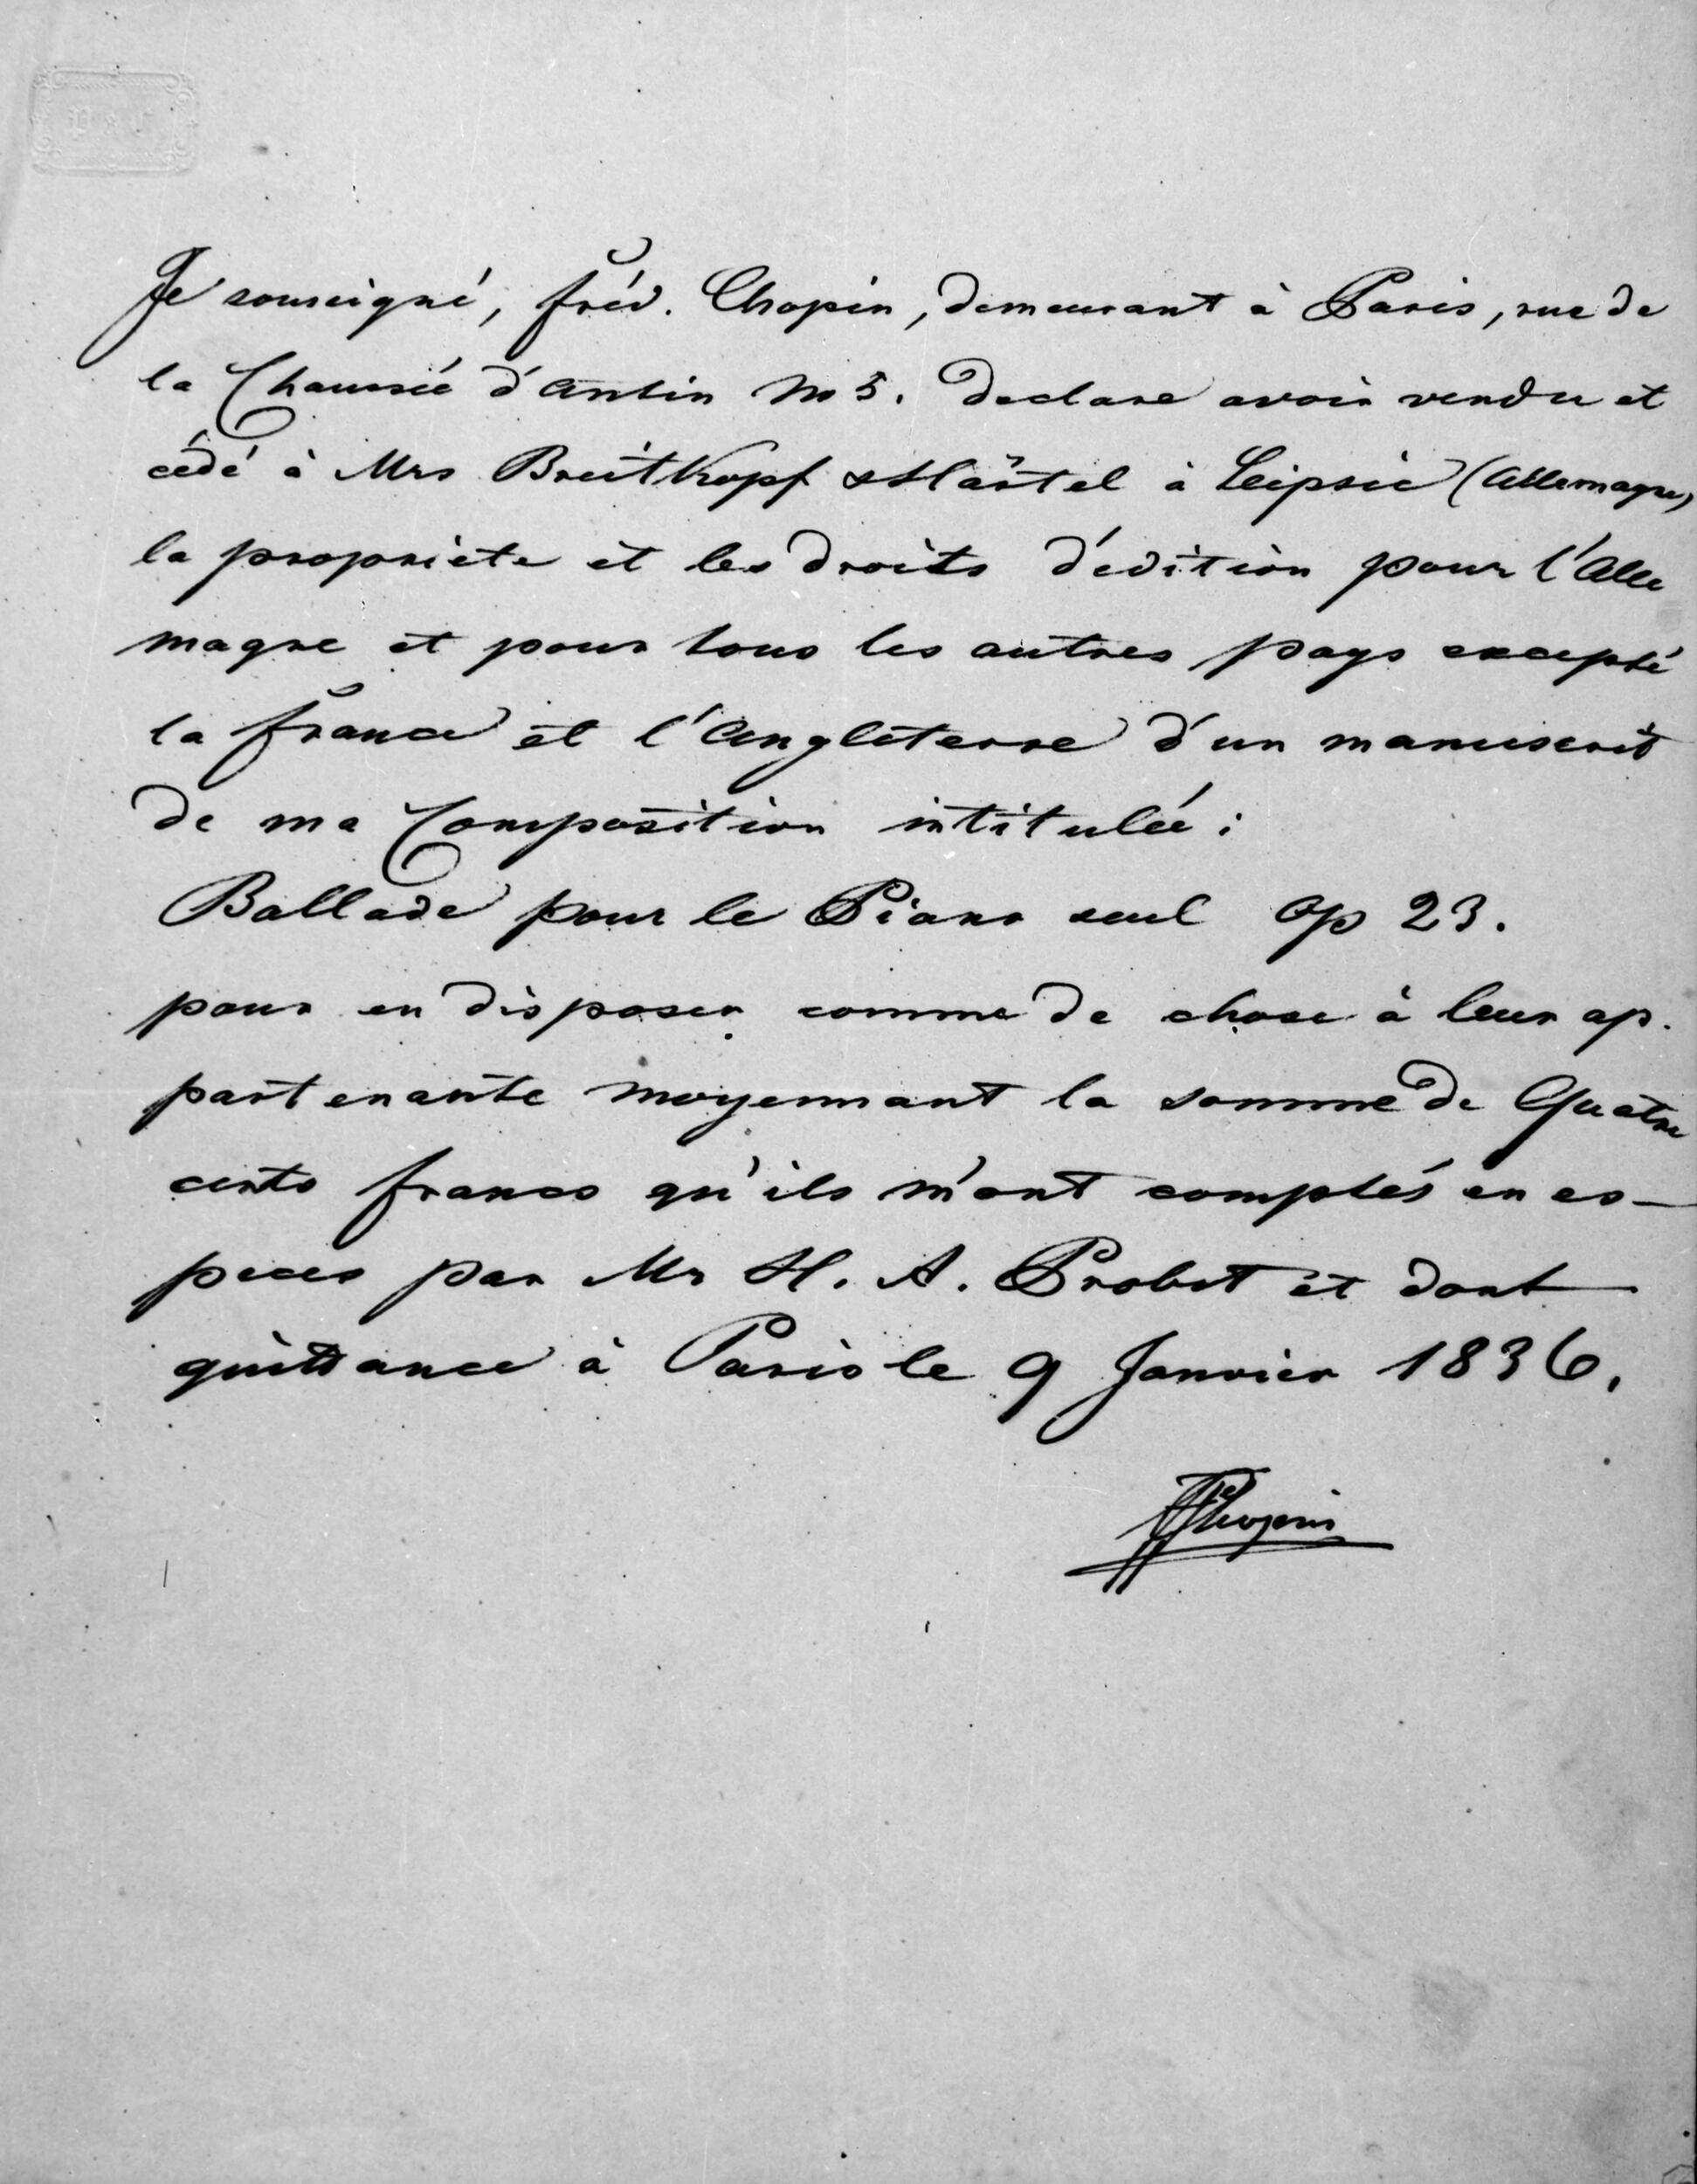 Je sousigné, Fréd. Chopin, demeurant à Paris, rue de
la Chaussée d'Antin No 5. declare avoir vendu et
cédé à Mrs Breitkopf & Härtel à Leipsic (Allemagne)
la propriete et les droits d'édition pour l'Alle
magne et pour tous les autres pays excepté
la France et l'Angleterre d'un manuscrit
de ma Composition intitulée:
Ballade pour le Piano seul Op 23.
pour en disposer comme de chose à leur ap.
partenante moyennant la somme de Quatre
cents francs qu'ils m'ont comptés en es-
peces par Mr H. A. Probst et dont
quittance à Paris le 9 Janvier 1836.
FChopin